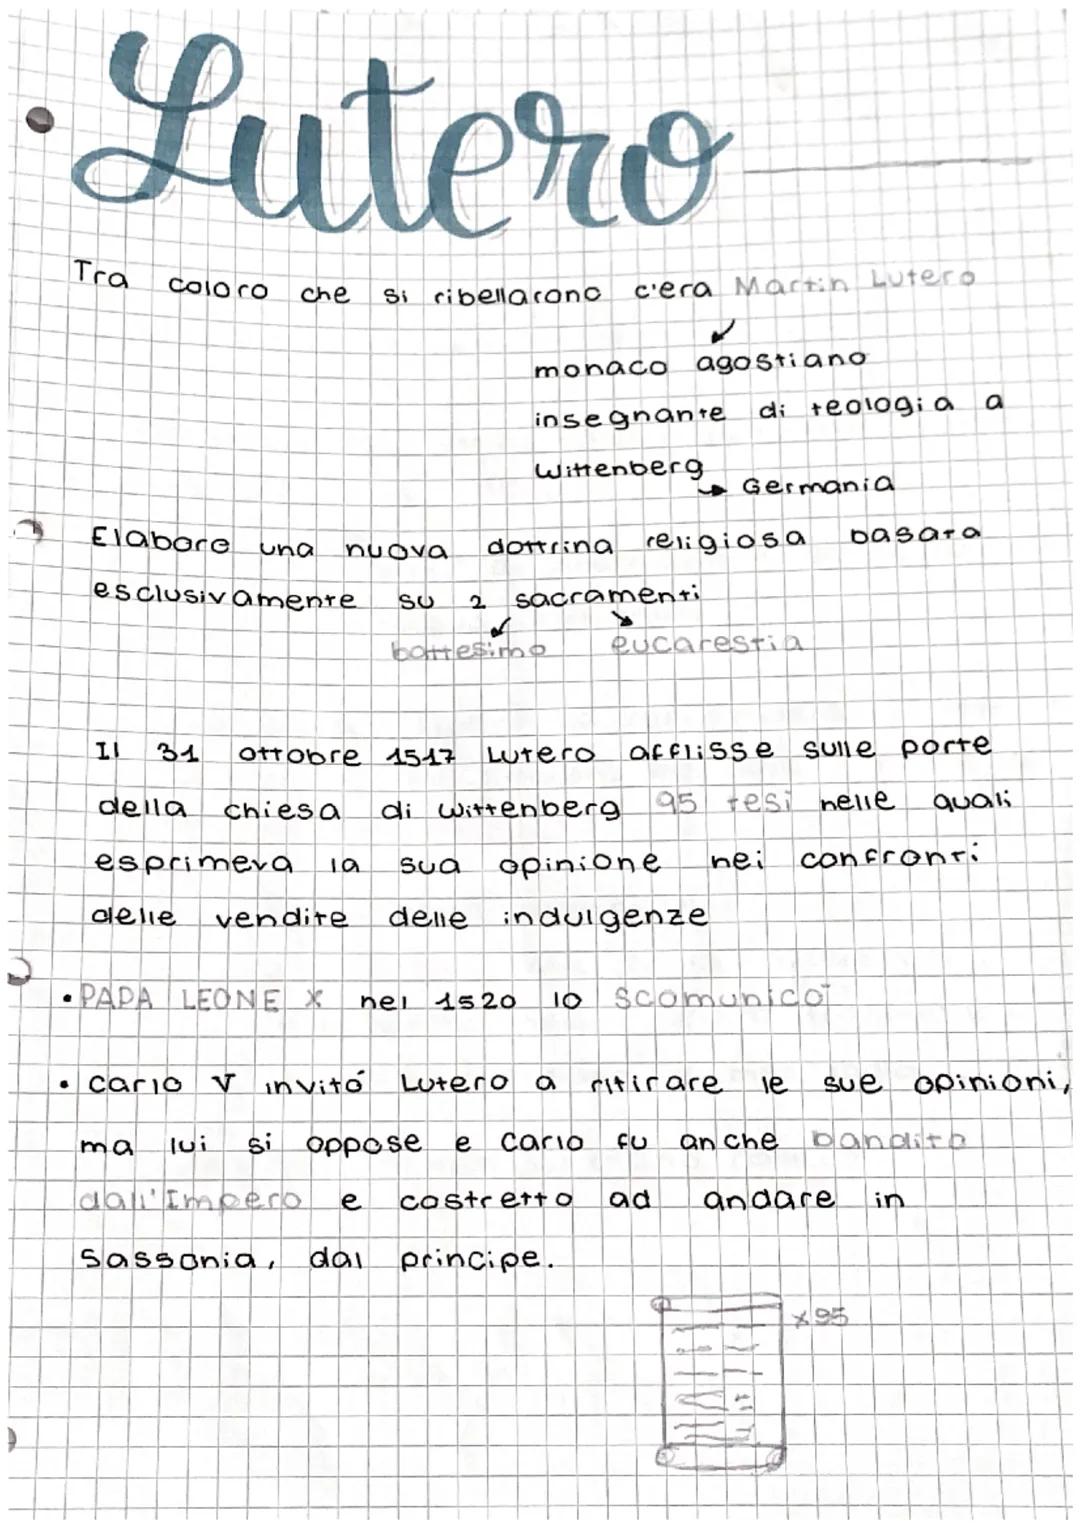 • Lutero
Tra coloro che si ribellarono c'era Martin Lutero
monaco agostiano
insegnante di teologia a
Wittenberg
→ Germania
Elaborò una nuova dottrina religiosa basata
esclusivamente su 2 sacramenti
battesimo eucarestia
Il 31 ottobre 1517 Lutero afflisse sulle porte
della chiesa di Wittenberg 95 tesi nelle quali
esprimeva la sua opinione nei confronti
delle vendite delle indulgenze
• PAPA LEONE X nel 1520 lo scomunicò
• Carlo V invitó Lutero a ritirare le sue opinioni,
ma lui si oppose e Carlo fu anche bandito
dall'Impero e costretto ad andare in
Sassonia, dal principe.
x95